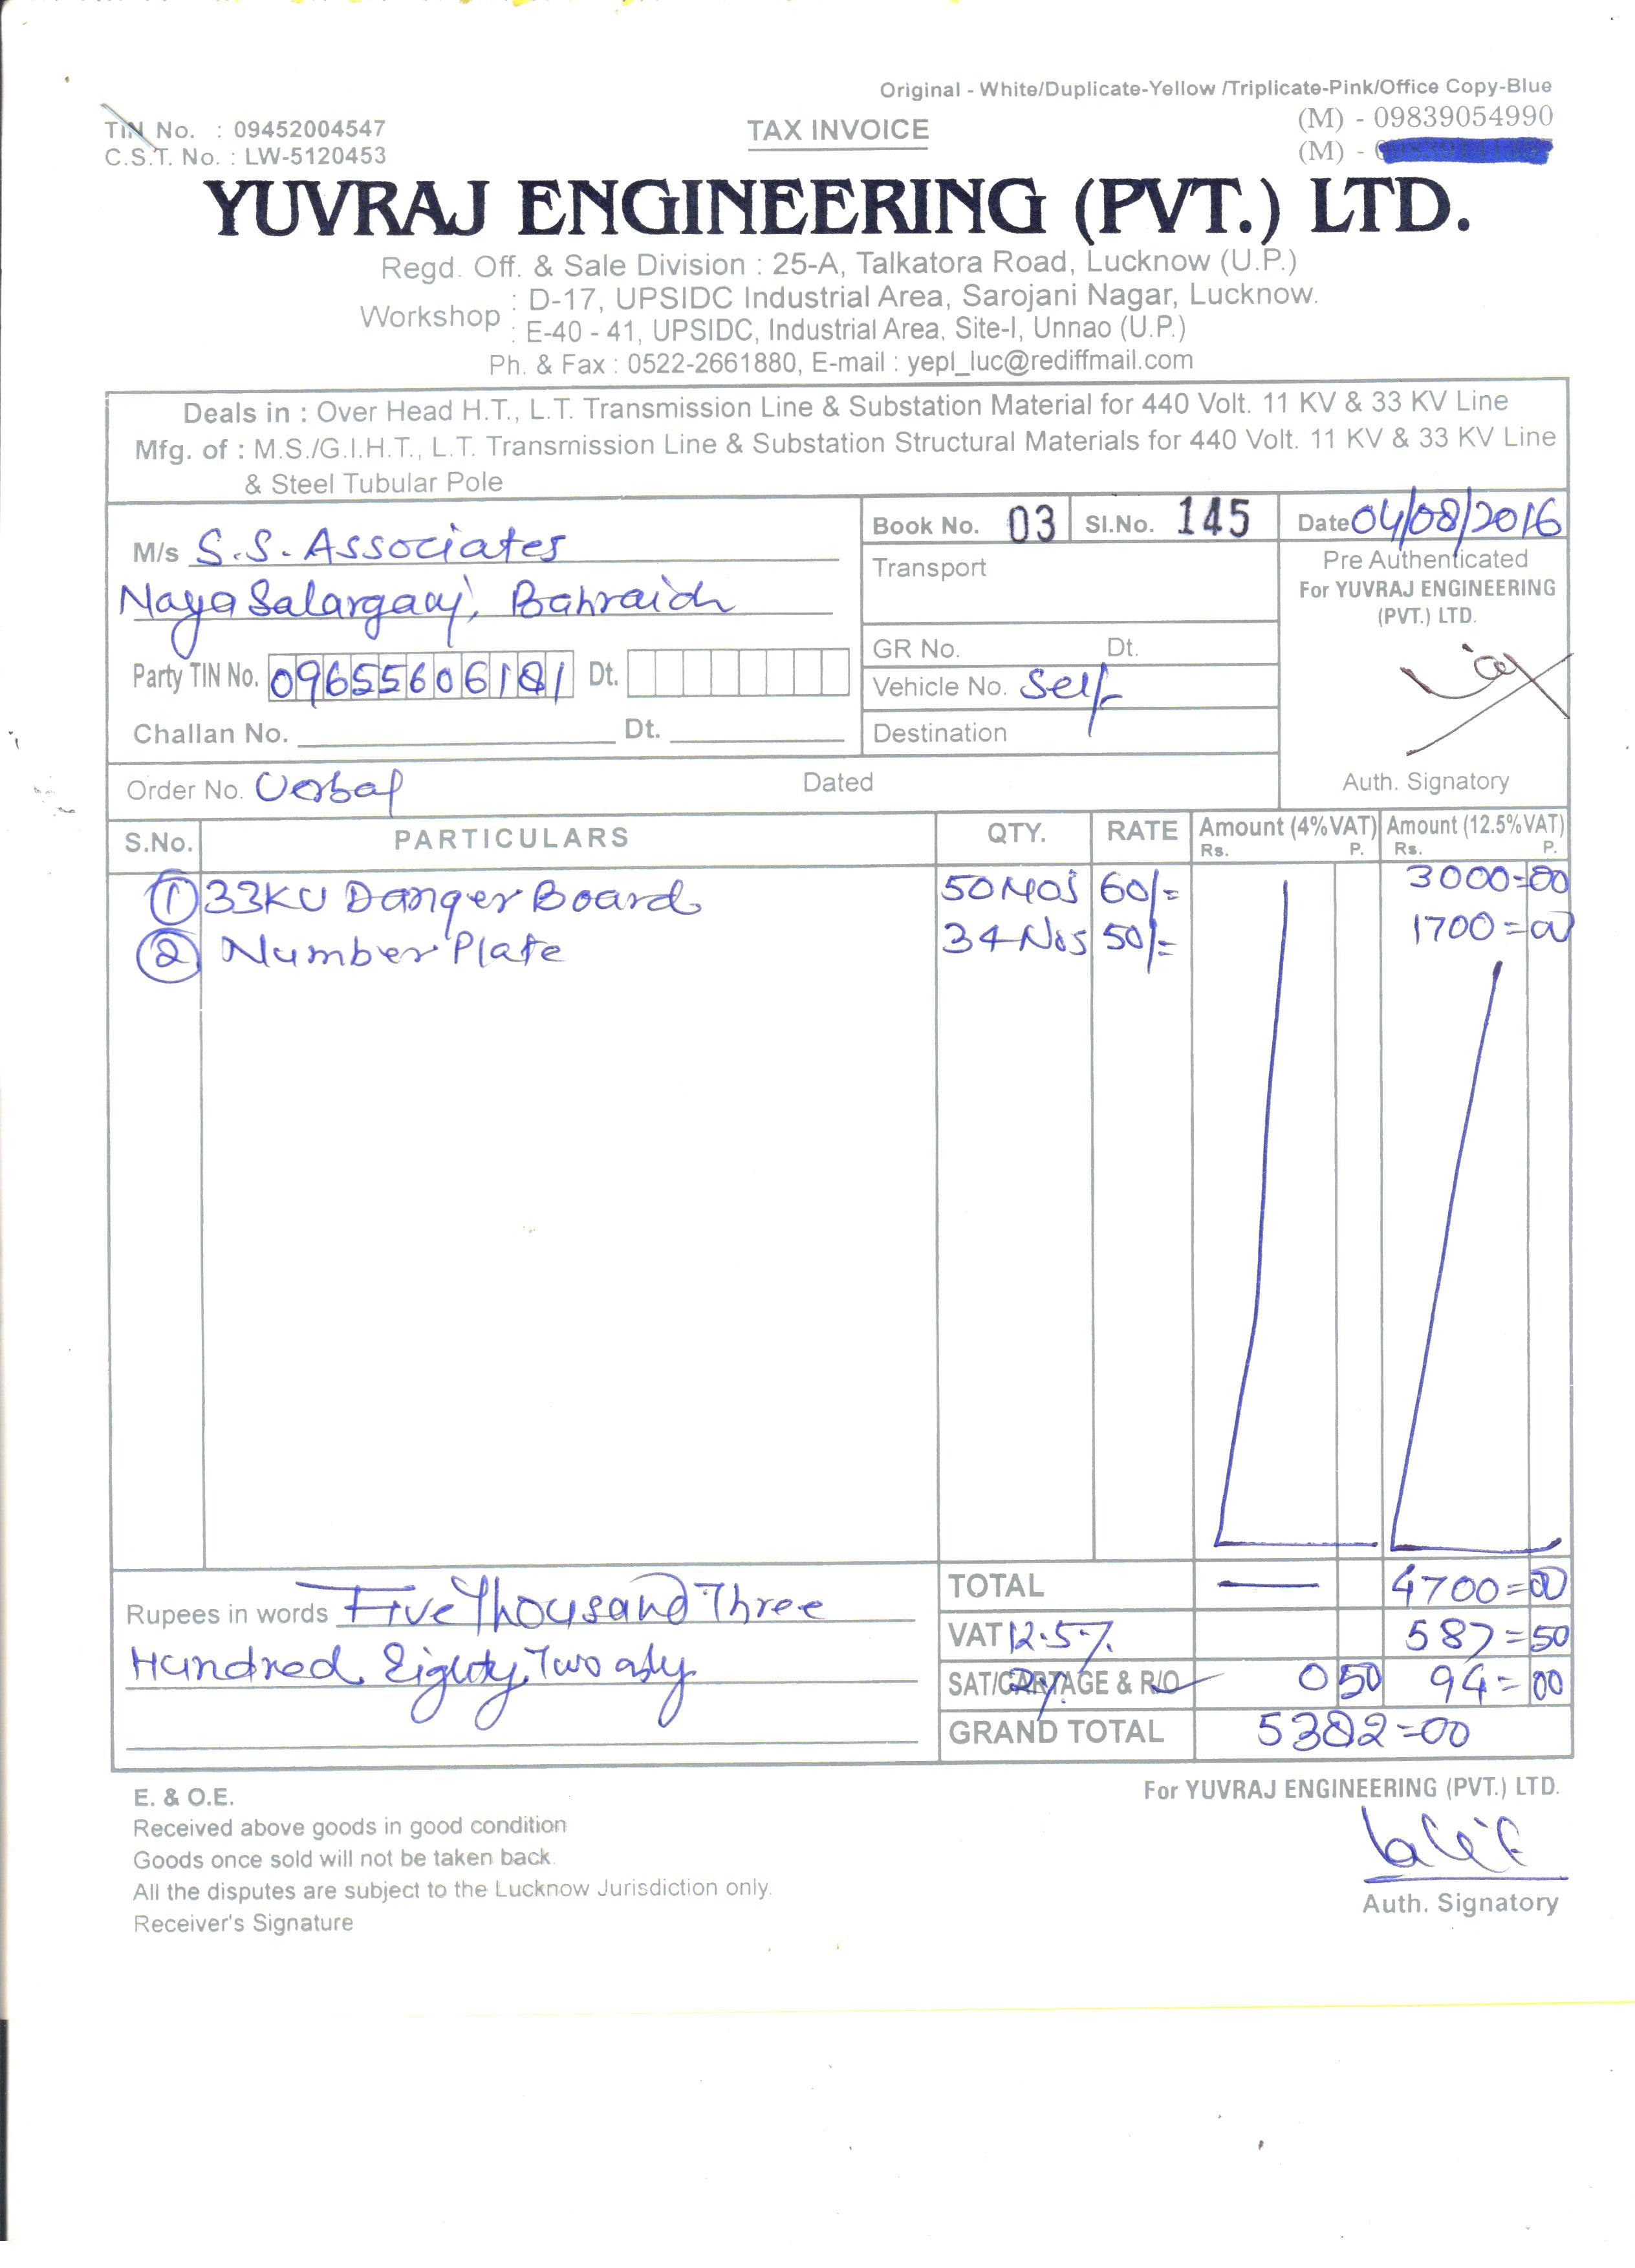 Original - White/Duplicate-Yellow /Triplicate-Pink/Office Copy-Blue
TIN No. : 09452004547
TAX INVOICE
(M) - 09839054990
C.S.T. No. : LW-5120453
(M) -
YUVRAJ ENGINEERING (PVT.) LTD.
Regd. Off. & Sale Division : 25-A, Talkatora Road, Lucknow (U.P.)
Workshop : D-17, UPSIDC Industrial Area, Sarojani Nagar, Lucknow.
: E-40 - 41, UPSIDC, Industrial Area, Site-I, Unnao (U.P.)
Ph. & Fax : 0522-2661880, E-mail : yepl_luc@rediffmail.com
Deals in : Over Head H.T., L.T. Transmission Line & Substation Material for 440 Volt. 11 KV & 33 KV Line
Mfg. of : M.S./G.I.H.T., L.T. Transmission Line & Substation Structural Materials for 440 Volt. 11 KV & 33 KV Line
& Steel Tubular Pole
M/s S.S. Associates
Naya Salarganj, Bahraich
Party TIN No. 09655606181 Dt.
Challan No. Dt.
Book No. 03 Sl.No. 145 Date 04/08/2016
Transport
GR No. Dt.
Vehicle No. Self
Destination
Pre Authenticated
For YUVRAJ ENGINEERING
(PVT.) LTD.
Auth. Signatory
Order No. Verbal Dated
S.No. PARTICULARS QTY. RATE Amount (4%VAT) Amount (12.5%VAT)
Rs. P. Rs. P.
1 33KV Danger Board 50 Nos 60/= 3000=00
2 Number Plate 34 Nos 50/= 1700=00
TOTAL — 4700=00
VAT 12.5% 587=50
SAT/CARTAGE & R/O 2% 0 50 94=00
GRAND TOTAL 5382=00
Rupees in words Five Thousand Three
Hundred Eighty Two only
E. & O.E.
Received above goods in good condition
Goods once sold will not be taken back.
All the disputes are subject to the Lucknow Jurisdiction only.
Receiver's Signature
For YUVRAJ ENGINEERING (PVT.) LTD.
Auth. Signatory